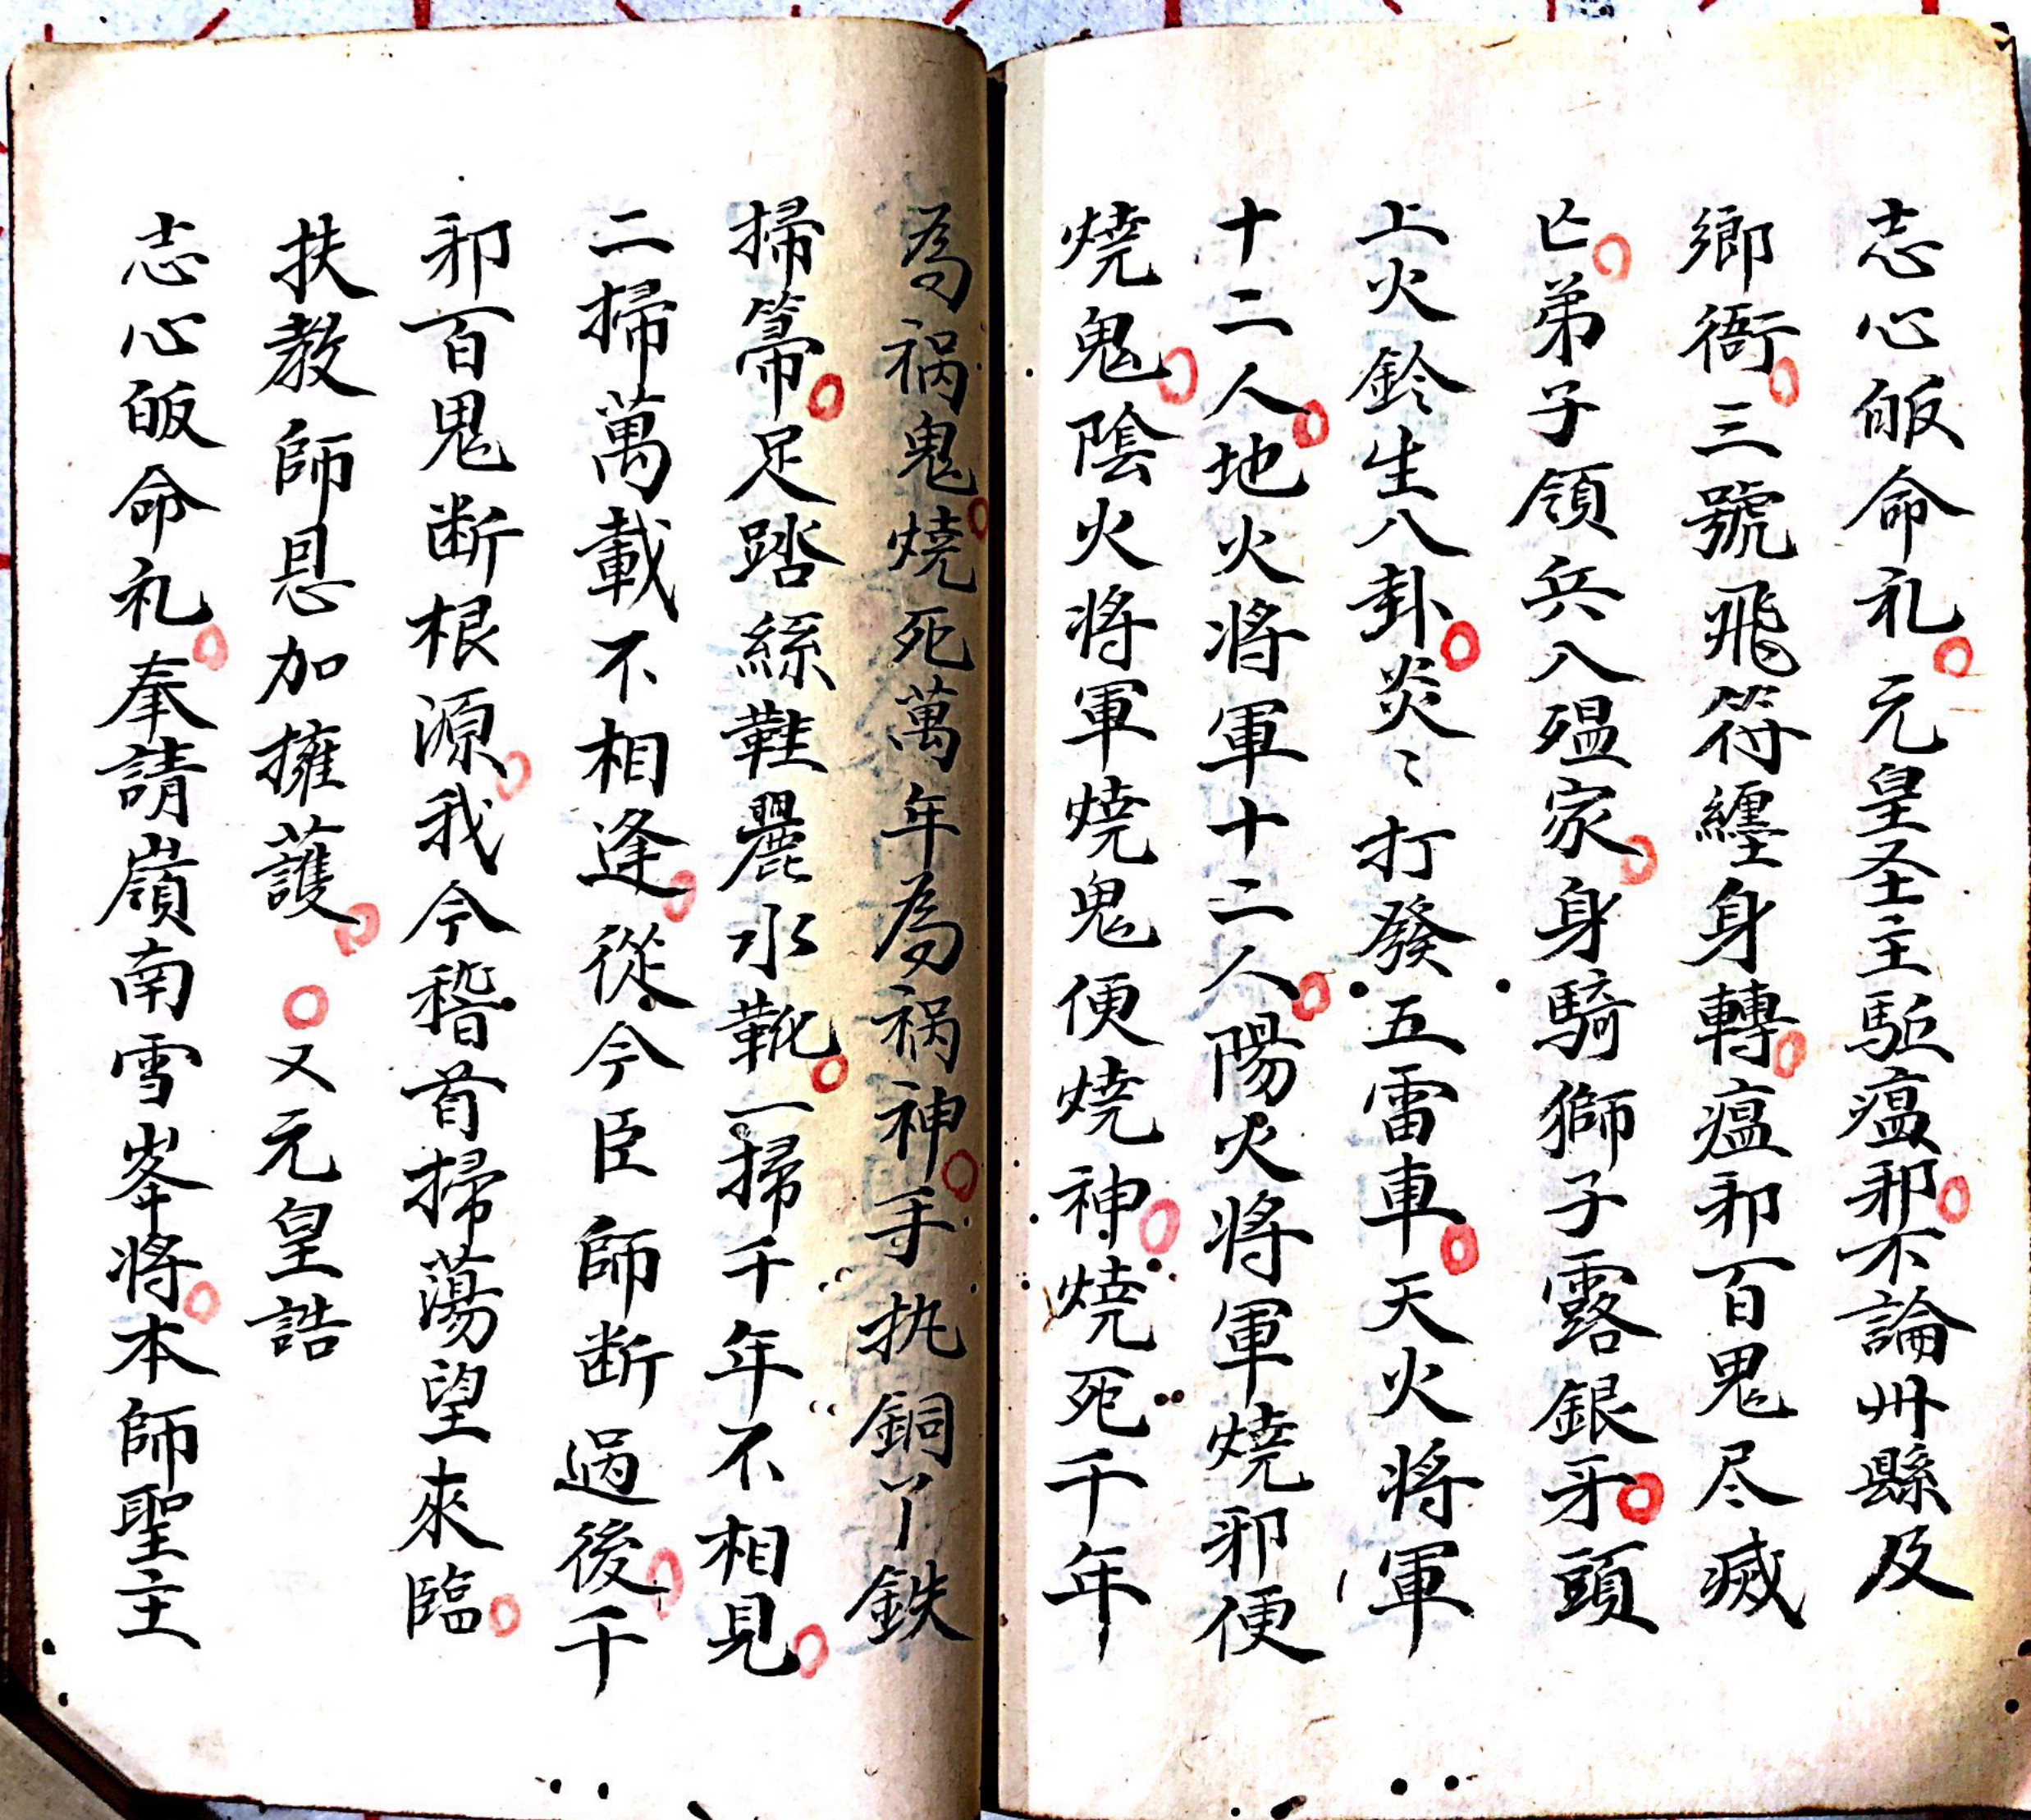 志心皈命礼元皇圣主駈瘟邪不論州縣及
鄉衙三號飛符纏身轉瘟邪百鬼尽滅
亡弟子領兵入瘟家身騎獅子露銀牙頭
上火鈴生八卦炎〻打發五雷車天火将軍
十二人地火将軍十二人陽火将軍燒邪便
燒鬼陰火将軍燒鬼便燒神燒死千年
為祸鬼燒死萬年為祸神手执銅丫鉄
掃箒足踏絲鞋水靴一掃千年不相見
二掃萬載不相逢從今臣師断過後千
邪百鬼断根源我今稽首掃蕩望來臨
扶教師恩加擁護又元皇誥
志心皈命礼奉請嶺南雪峯将本師聖主